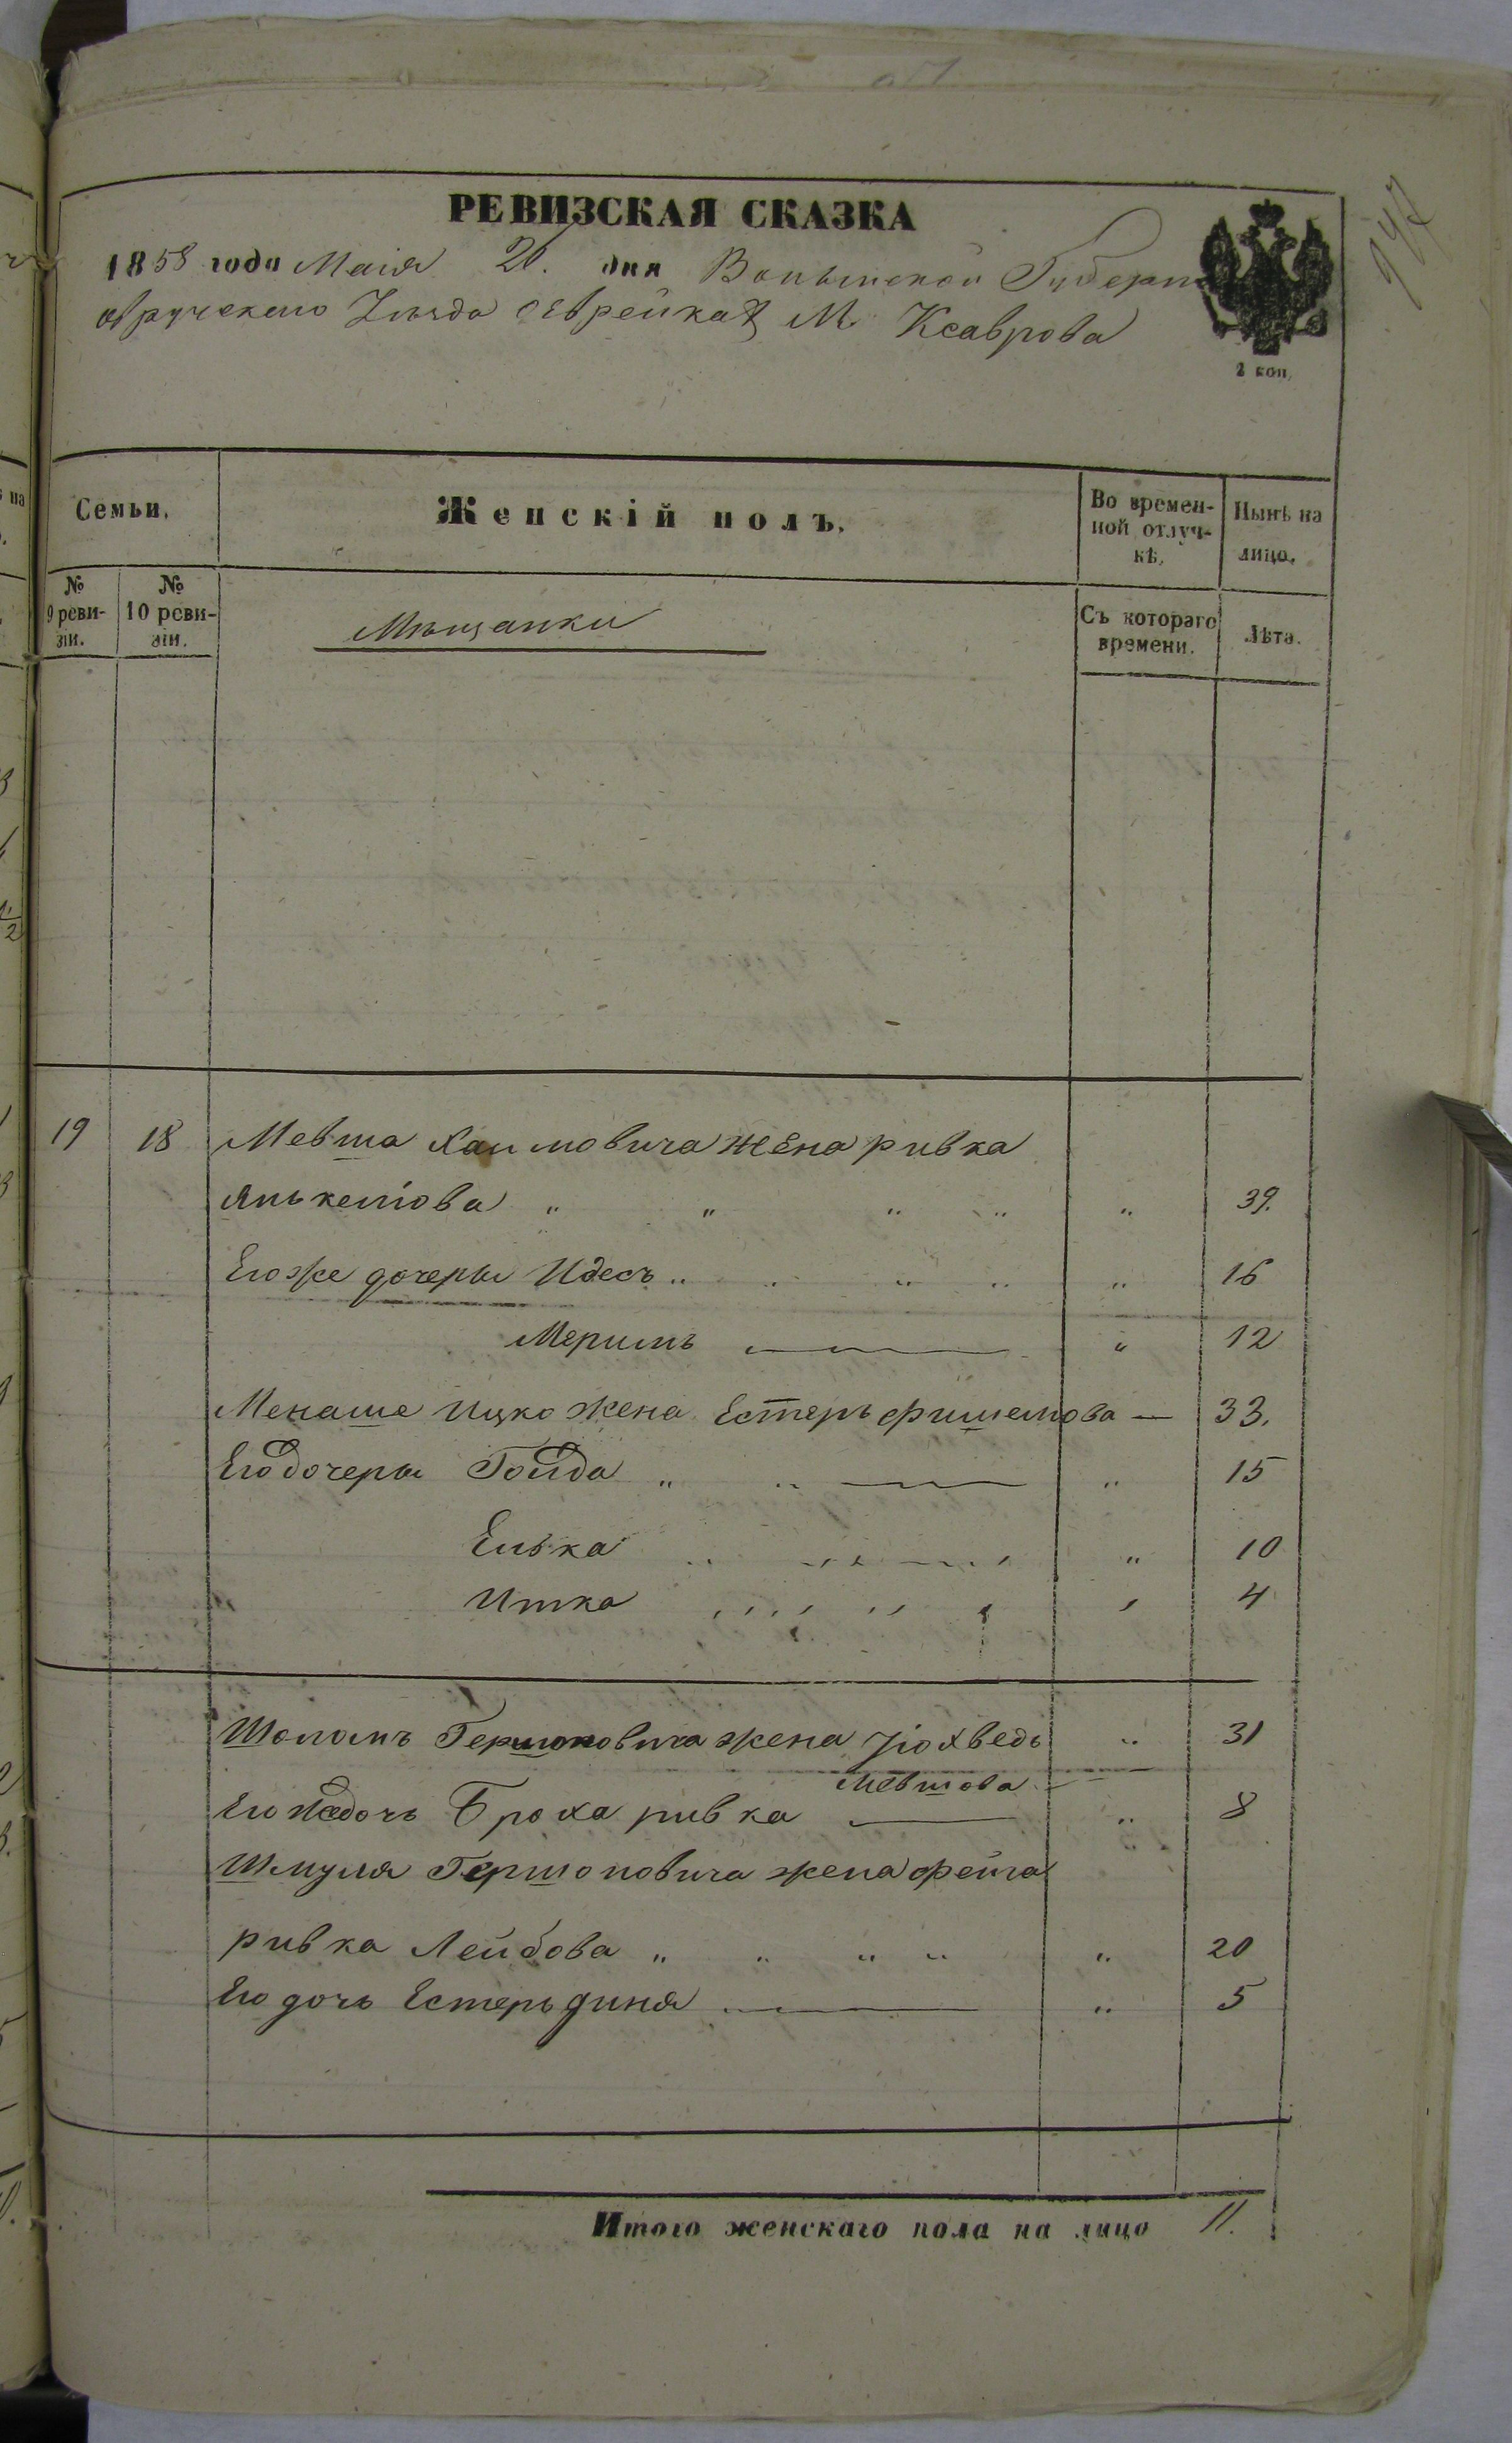 РЕВИЗСКАЯ СКАЗКА
1858 года Маія 20. дня Волынской Губерн
овручскаго Уѣзда о еврейкахъ М. Ксаврова
2 коп.
Семьи.
Женскій полъ.
Во времен-
ной отлуч-
кѣ.
Нынѣ на
лицо.
№
9 реви-
зіи.
№
10 реви-
зіи.
Мѣщанки
Съ котораго
времени.
Лѣта.
19 18 Мевша Хаимовича жена ривка
Янькелюва " " " " " 39.
Его же дочеры Идесъ " " " " " 16
Меримъ " 12
Менаше Ицко жена Естеръ фишелюва — 33.
Его дочеры Гольда " " — " 15
Елька " " 10
Итка " 4
Шоломъ Гершоновича жена Јохведь " 31
Мевшова
Его же дочь Броха ривка — " 8
Шмуля Гершоновича жена фейга
ривка Лейбова " " " " " 20
Его дочь Естеръ дина — " 5
Итого женскаго пола на лицо 11.